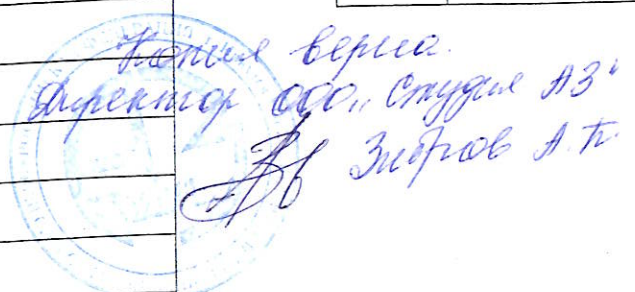 Копия верна.
Директор ООО „Студия АЗ"
Зибров А.П.